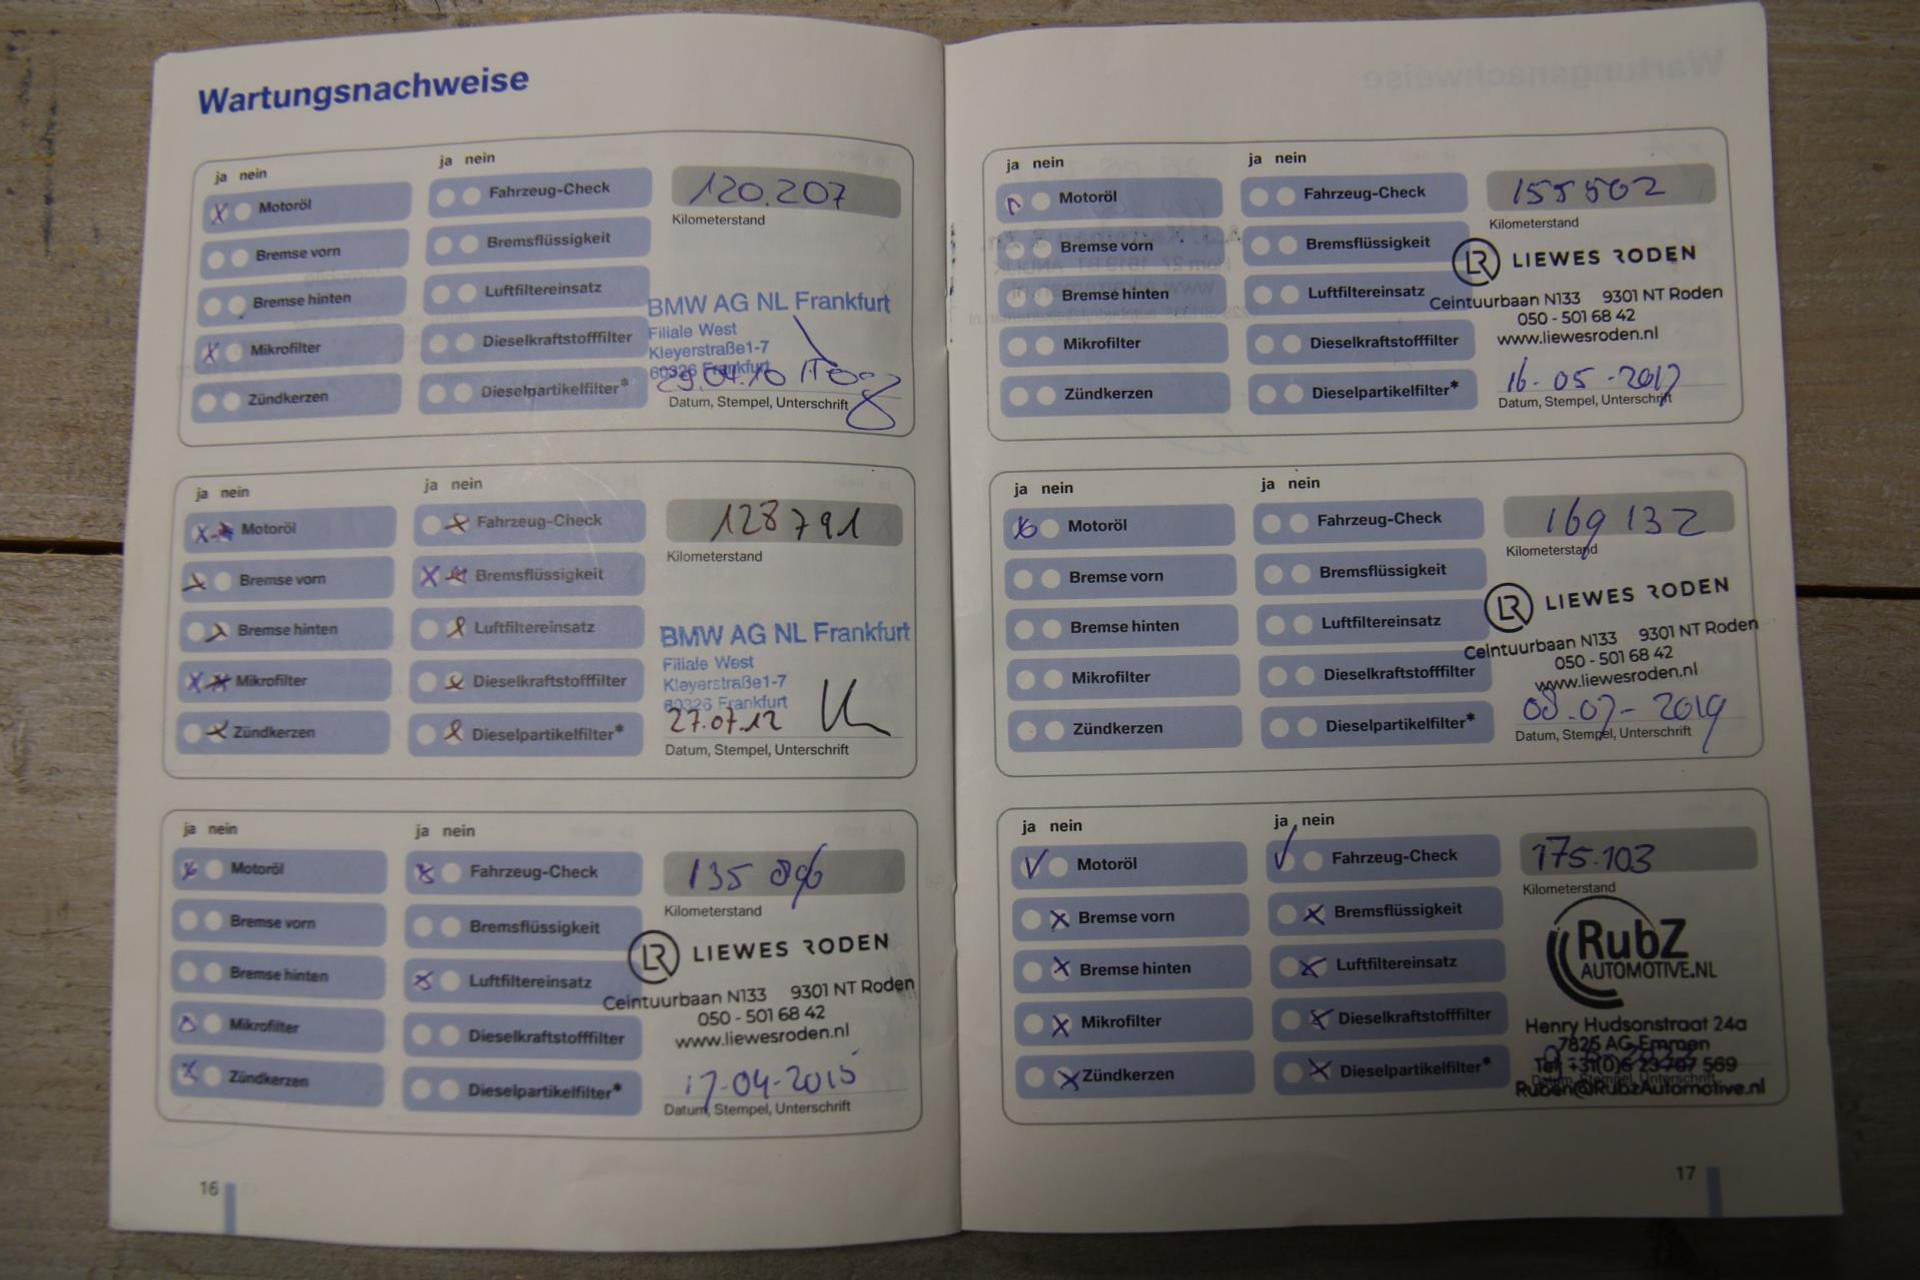 Wartungsnachweise
ja nein
ja nein
Motoröl
Fahrzeug-Check
120.207
Kilometerstand
Bremse vorn
Bremsflüssigkeit
Bremse hinten
Luftfiltereinsatz
Mikrofilter
Dieselkraftstofffilter
Zündkerzen
Dieselpartikelfilter*
BMW AG NL Frankfurt
Filiale West
Kleyerstraße1-7
60326 Frankfurt
29.04.10
Datum, Stempel, Unterschrift
ja nein
ja nein
Motoröl
Fahrzeug-Check
128791
Kilometerstand
Bremse vorn
Bremsflüssigkeit
Bremse hinten
Luftfiltereinsatz
Mikrofilter
Dieselkraftstofffilter
Zündkerzen
Dieselpartikelfilter*
BMW AG NL Frankfurt
Filiale West
Kleyerstraße1-7
60326 Frankfurt
27.07.12
Datum, Stempel, Unterschrift
ja nein
ja nein
Motoröl
Fahrzeug-Check
135 896
Kilometerstand
Bremse vorn
Bremsflüssigkeit
Bremse hinten
Luftfiltereinsatz
Mikrofilter
Dieselkraftstofffilter
Zündkerzen
Dieselpartikelfilter*
LR LIEWES RODEN
Ceintuurbaan N133 9301 NT Roden
050 - 501 68 42
www.liewesroden.nl
17-04-2015
Datum, Stempel, Unterschrift
16
ja nein
ja nein
Motoröl
Fahrzeug-Check
155502
Kilometerstand
Bremse vorn
Bremsflüssigkeit
Bremse hinten
Luftfiltereinsatz
Mikrofilter
Dieselkraftstofffilter
Zündkerzen
Dieselpartikelfilter*
LR LIEWES RODEN
Ceintuurbaan N133 9301 NT Roden
050 - 501 68 42
www.liewesroden.nl
16-05-2017
Datum, Stempel, Unterschrift
ja nein
ja nein
Motoröl
Fahrzeug-Check
169 132
Kilometerstand
Bremse vorn
Bremsflüssigkeit
Bremse hinten
Luftfiltereinsatz
Mikrofilter
Dieselkraftstofffilter
Zündkerzen
Dieselpartikelfilter*
LR LIEWES RODEN
Ceintuurbaan N133 9301 NT Roden
050 - 501 68 42
www.liewesroden.nl
08-07-2019
Datum, Stempel, Unterschrift
ja nein
ja nein
Motoröl
Fahrzeug-Check
175.103
Kilometerstand
Bremse vorn
Bremsflüssigkeit
Bremse hinten
Luftfiltereinsatz
Mikrofilter
Dieselkraftstofffilter
Zündkerzen
Dieselpartikelfilter*
RubZ
AUTOMOTIVE.NL
Henry Hudsonstraat 24a
7825 AG Emmen
Tel +31(0)6 23 707 569
Datum, Stempel, Unterschrift
Ruben@RubzAutomotive.nl
17